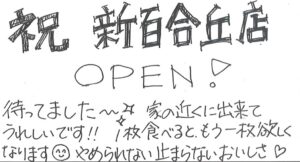 祝 新百合丘店
OPEN!
待ってました〜✨ 家の近くに出来て
うれしいです!! 1枚食べると、もう一枚欲しく
なります☺ やめられない止まらないおいしさ♡